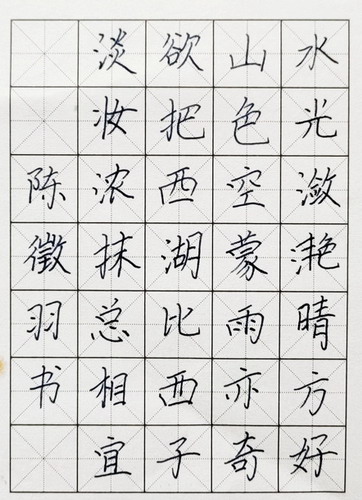 水光潋滟晴方好
山色空蒙雨亦奇
欲把西湖比西子
淡妆浓抹总相宜
陈徵羽书